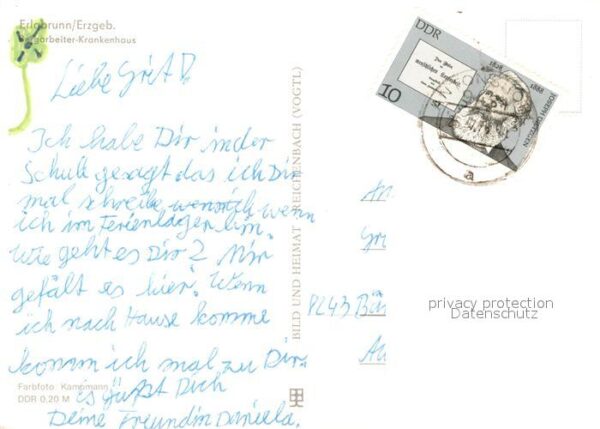 Erlabrunn/Erzgeb.
Bergarbeiter-Krankenhaus
Liebe Grit!
Ich habe Dir in der
Schule gesagt das ich Dir
mal schreibe wenn
ich im Ferienlager bin.
Wie geht es Dir? Mir
gefält es hier. Wenn
ich nach Hause komme
komm ich mal zu Dir.
Es grüßt Dich
Deine Freundin Daniela.
Farbfoto Kampmann
DDR 0,20 M
BILD UND HEIMAT REICHENBACH (VOGTL)
DDR
10
1828
1888
JOSEPH DIETZGEN
a
An
Gr
8243 Bär
Al
privacy protection
Datenschutz